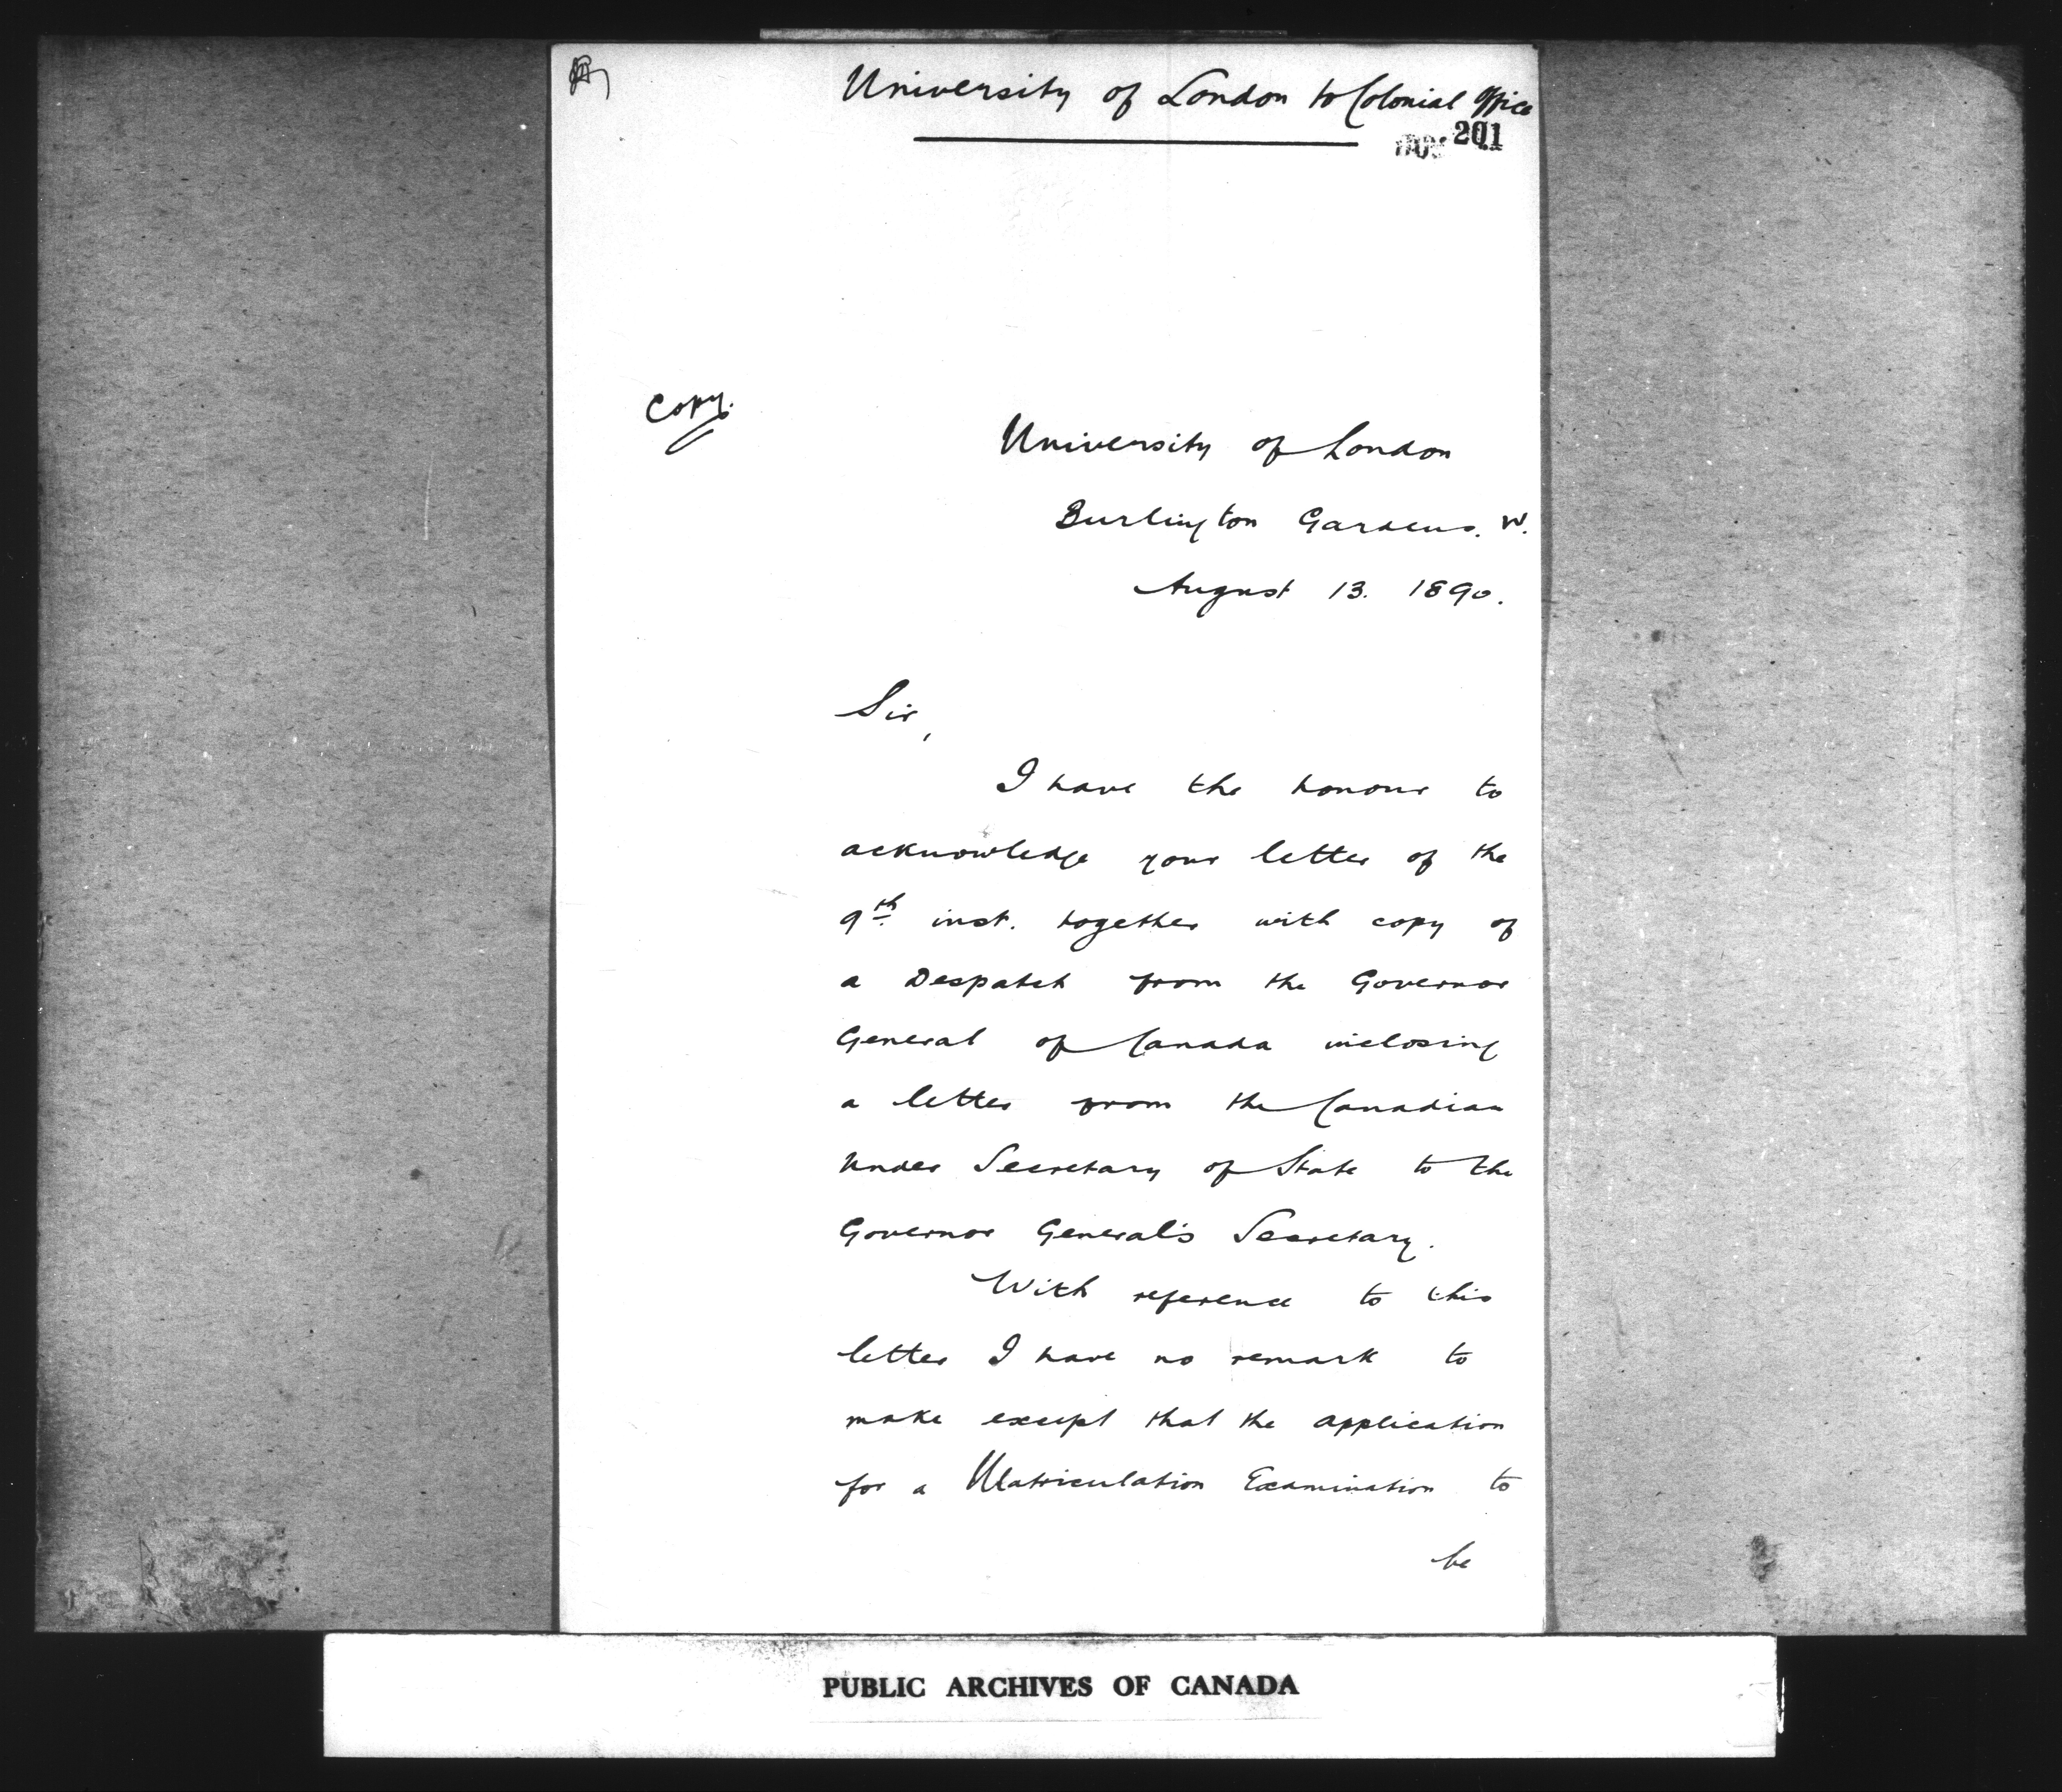 University of London to Colonial Office
201
Copy.
University of London
Burlington Gardens. W.
August 13. 1890.
Sir,
I have the honour to
acknowledge your letter of the
9th inst. together with copy of
a Despatch from the Governor
General of Canada inclosing
a letter from the Canadian
Under Secretary of State to the
Governor General's Secretary.
With reference to this
letter I have no remark to
make except that the application
for a Matriculation Examination to
be
PUBLIC ARCHIVES OF CANADA